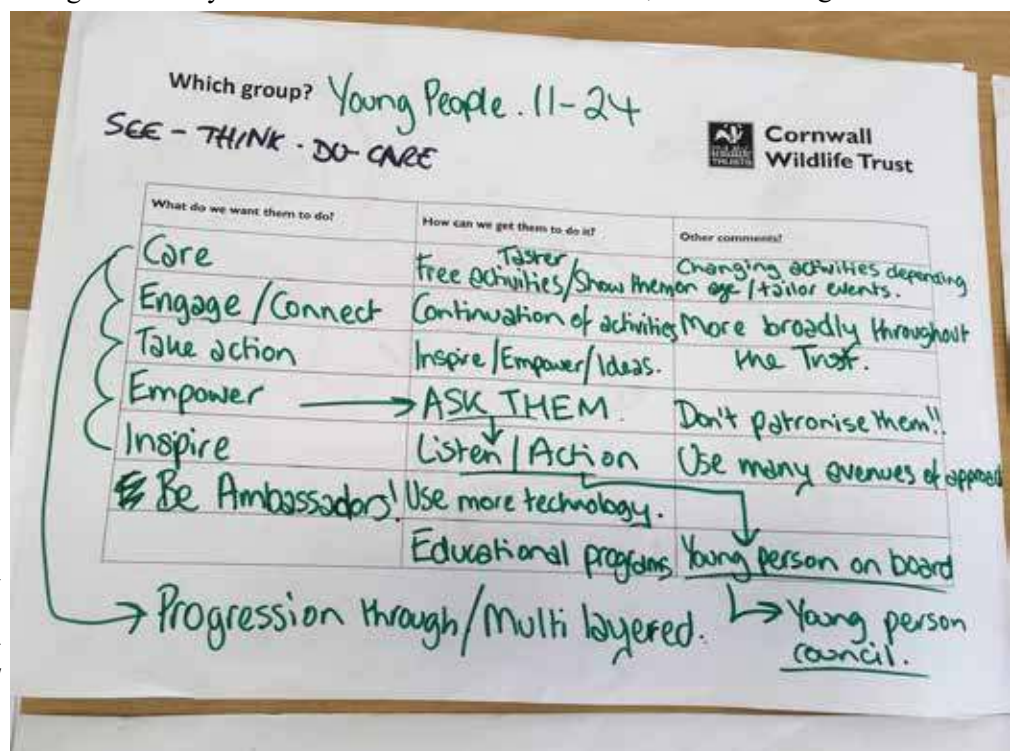 Which group? Young People. 11-24
SEE - THINK - DO - CARE
Cornwall
Wildlife Trust
What do we want them to do?
How can we get them to do it?
Other comments?
Care
Taster
Free activities/Show them
Changing activities depending
on age/tailor events.
Engage/Connect
Continuation of activities
More broadly throughout
the Trust.
Take action
Inspire/Empower/Ideas.
Empower
ASK THEM.
Don't patronise them!!
Inspire
Listen/Action
Use many avenues of approach
Be Ambassadors!
Use more technology.
Educational programs
Young person on board
Progression through/Multi layered.
Young person
council.